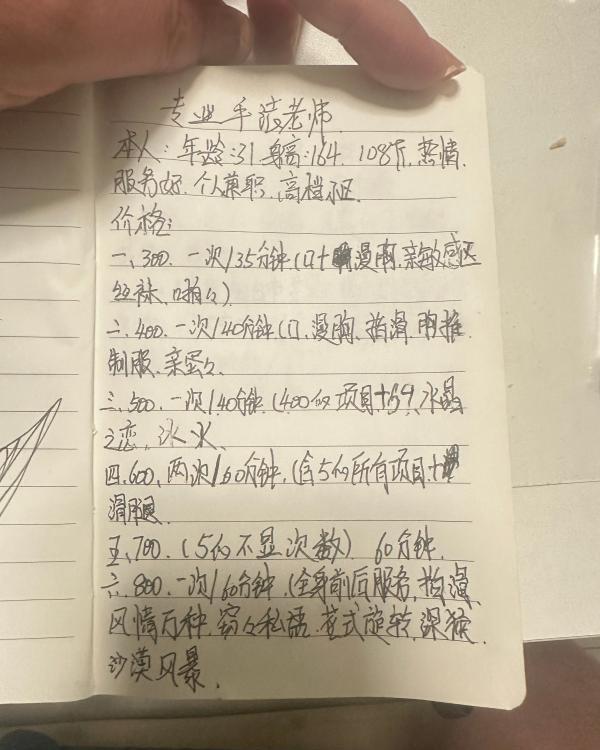 专业手法老师
本人:年龄:31 身高:164. 108斤,热情.
服务好.个人兼职,高档小区.
价格:
一、300.一次/35分钟(口+漫胸,亲敏感区
丝袜、啪々)
二、400.一次/40分钟(口、漫胸、指滑,胸推
制服、亲蛋々
三、500.一次/40分钟(400的项目+59,水晶
之恋,冰火、
四.600、两次/60分钟,(含5的所有项目+
滑腿
五、700.(5的不显次数)60分钟.
六、800.一次/60分钟(全身前后服务,指漫
风情万种,窃々私语,花式旋转,深猴
沙漠风暴.